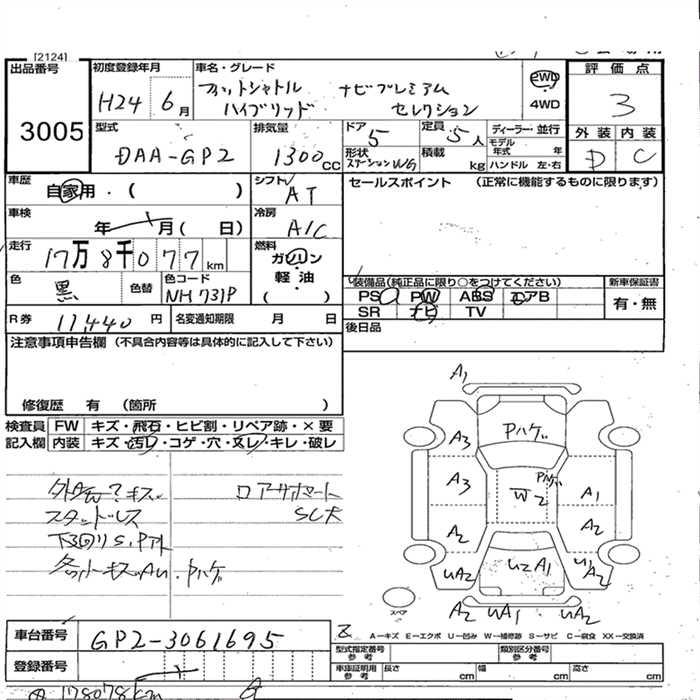 [2124]
出品番号
3005
初度登録年月
H24 6月
車名・グレード
フィットシャトル ナビプレミアム
ハイブリッド セレクション
2WD
4WD
評価点
3
外装 内装
D C
型式
DAA-GP2
排気量
1300cc
ドア
5
定員
5人
形状
ステーションWG
積載
kg
ディーラー・並行
モデル年式 年
ハンドル 左・右
車歴
自家用・( )
シフト
AT
車検
年 月( 日)
冷房
A/C
走行
17万8千077km
燃料
ガソリン
軽・油
( )
色
黒
色替
色コード
NH731P
R券
11,440円
名変通知期限 月 日
セールスポイント (正常に機能するものに限ります)
装備品(純正品に限り○をつけてください)
PS PW ABS エアB
SR ナビ TV
新車保証書
有・無
後日品
注意事項申告欄(不具合内容等は具体的に記入して下さい)
修復歴 有 (箇所 )
検査員記入欄
FW キズ・飛石・ヒビ割・リペア跡・×要
内装 キズ・汚レ・コゲ・穴・スレ・キレ・破レ
キズ
スタッドレス
下回りS,P
キズAU・Pハゲ
A1
A3
Pハゲ
A3
Pハゲ
W2
A1
A2
A2
UA2
U2A1
UA2
A2 UA1 UA2
スペア
A―キズ E―エクボ U―凹み W―補修跡 S―サビ C―腐食 XX―交換済
車台番号
GP2-3061695
登録番号
型式指定番号参考
類別区分番号参考
車庫証明用参考
長さ cm
幅 cm
高さ cm
178078km